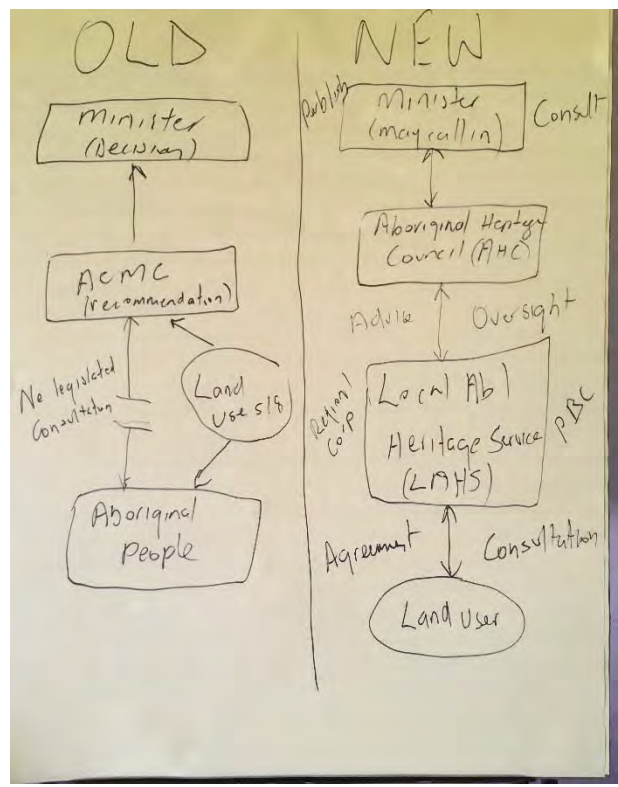 OLD
Minister
(Decision)
ACMC
(recommendation)
No legislated
Consultation
Land
use s18
Aboriginal
people
NEW
Publish
Minister
(may call in)
Consult
Aboriginal Heritage
Council (AHC)
Advice
Oversight
Local Abl
Heritage Service
(LAHS)
Corp
PBC
Agreement
Consultation
Land user